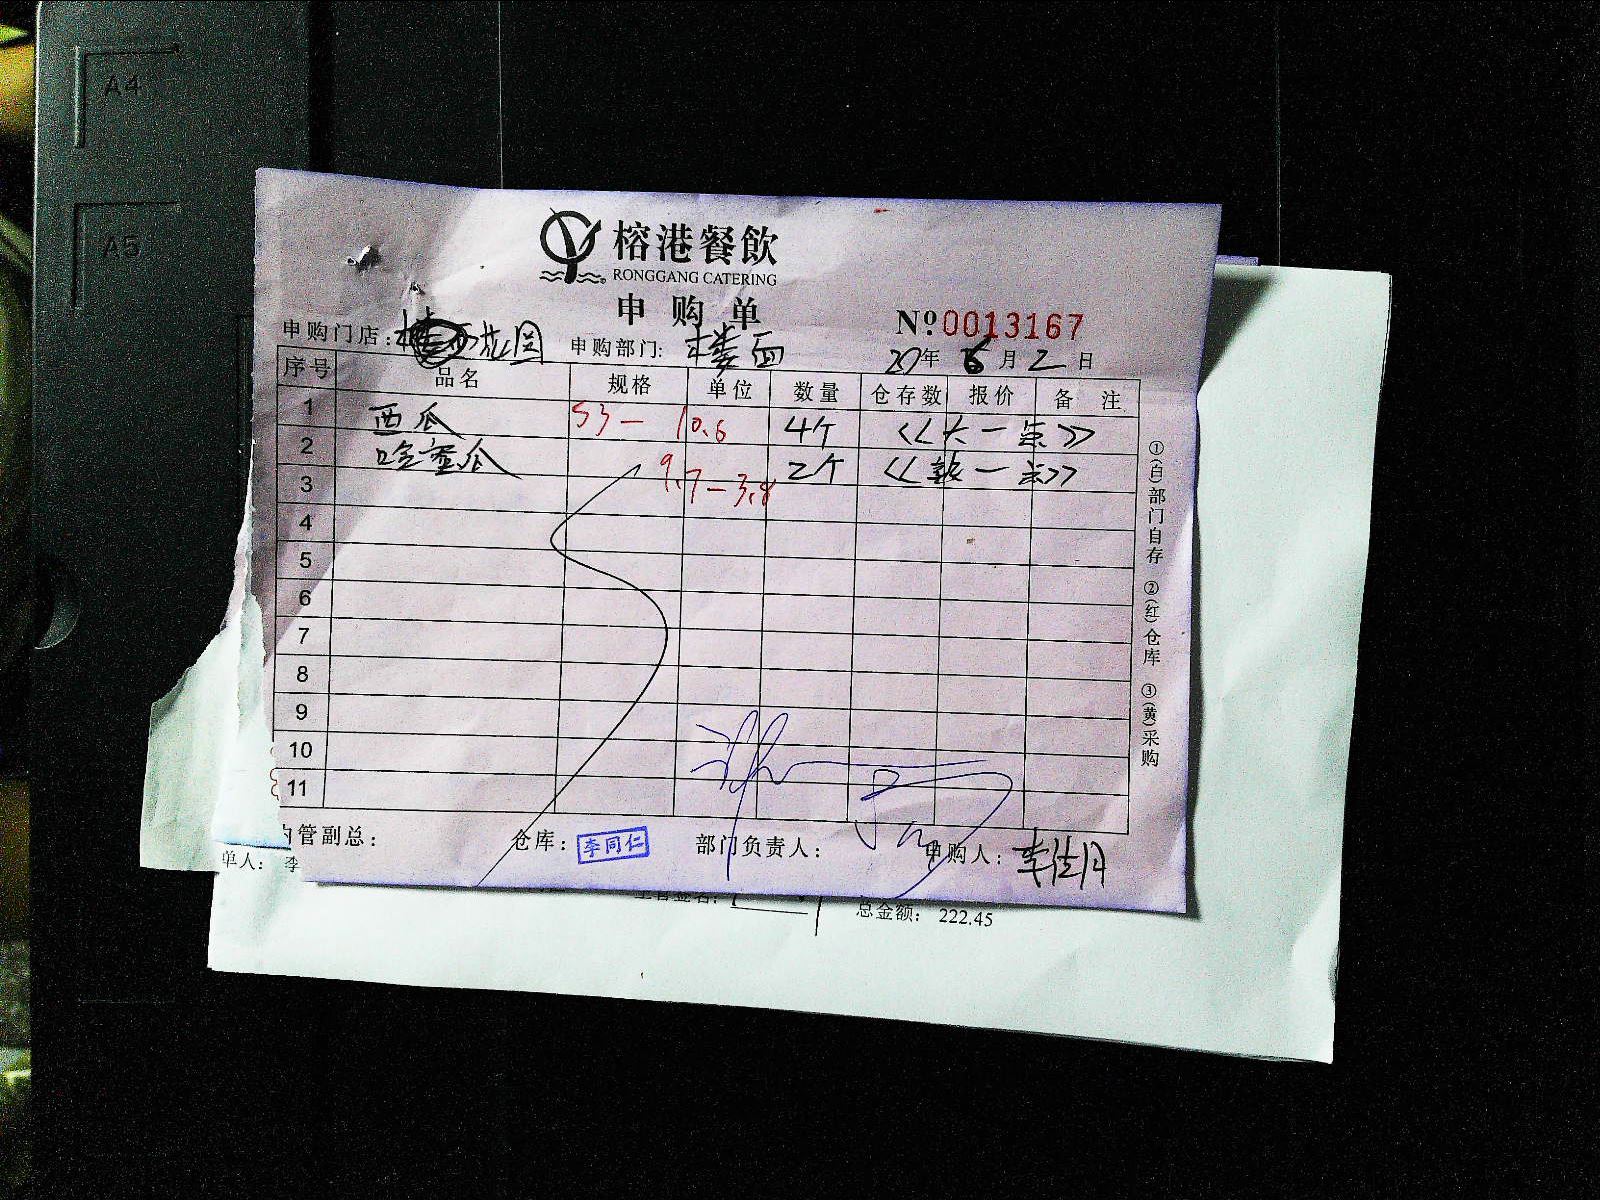 A4
A5
榕港餐飲
RONGGANG CATERING
申购单
申购门店: 西花园 申购部门: 楼面 №0013167
20 年 6 月 2 日
序号 品名 规格 单位 数量 仓存数 报价 备注
1 西瓜 53— 10.6 4个 《大一点》
2 哈蜜瓜 9.7—3.8 2个 《熟一点》
3
4
5
6
7
8
9
10
11
①(白)部门自存 ②(红)仓库 ③(黄)采购
管副总: 仓库: 李同仁 部门负责人: 申购人: 李佳月
单人: 李
总金额: 222.45